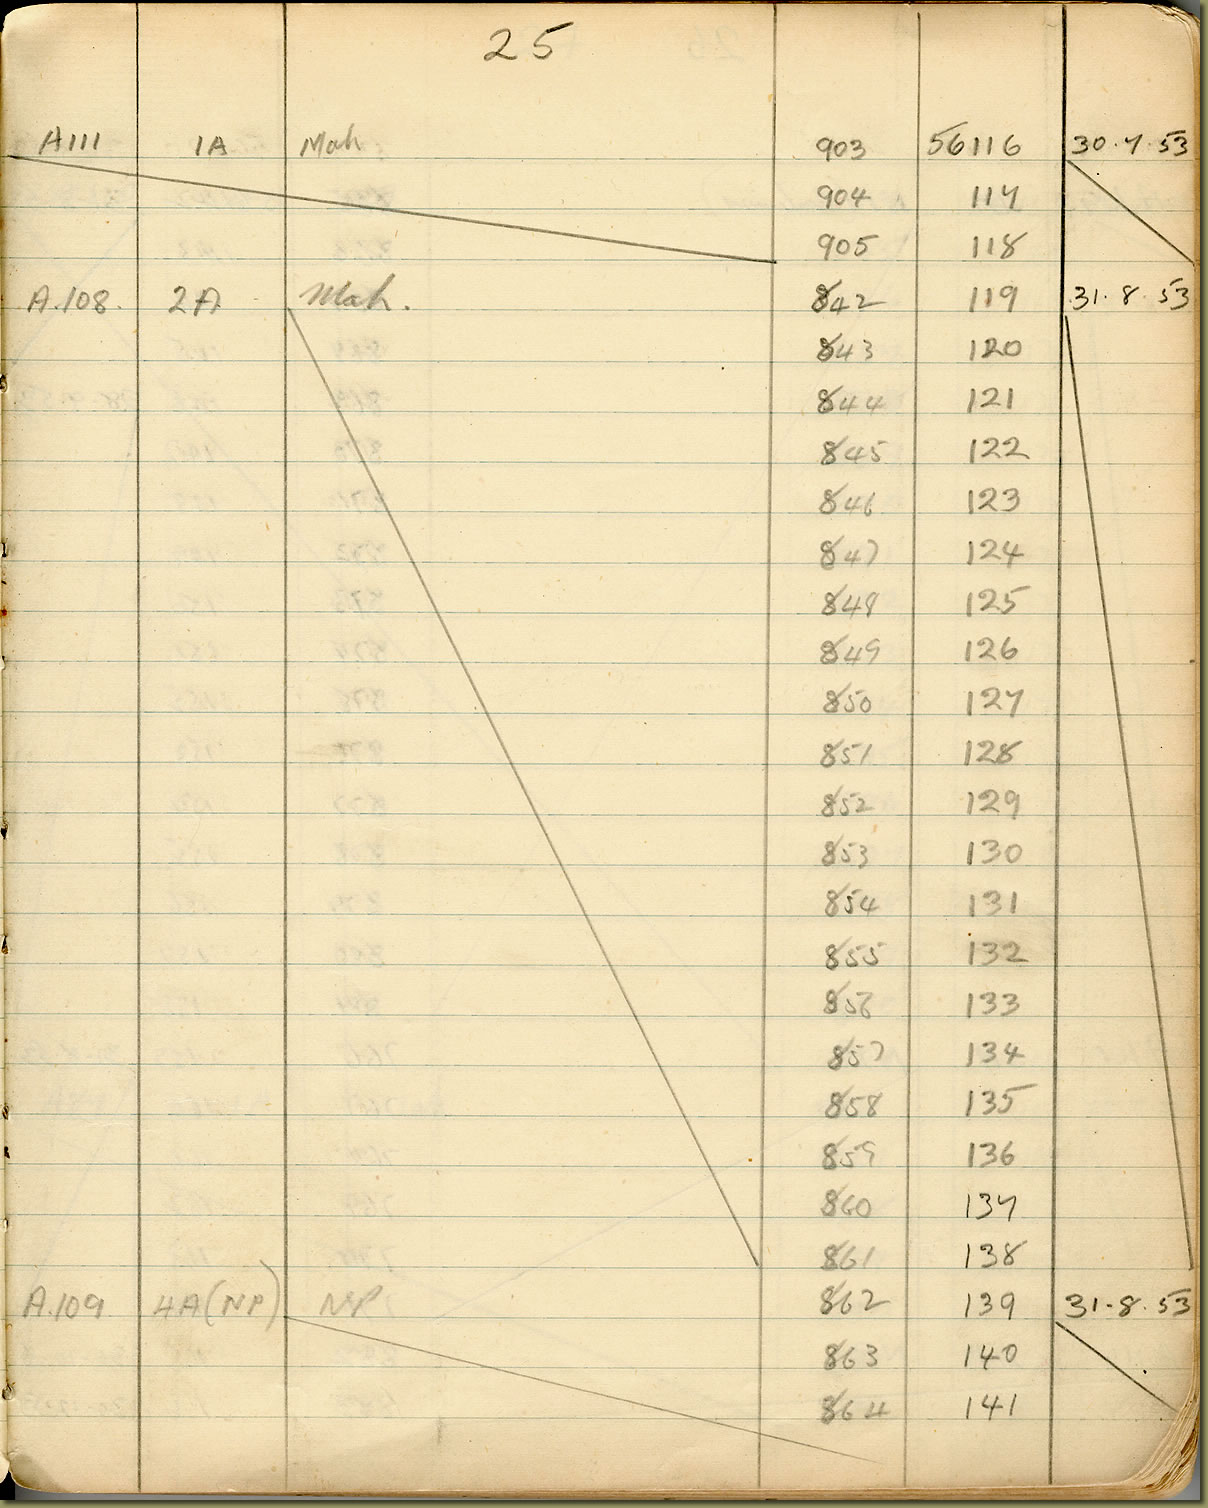 25
A111 1A Mah 903 56116 30.7.53
904 117
905 118
A.108. 2A Mah. 842 119 31.8.53
843 120
844 121
845 122
846 123
847 124
848 125
849 126
850 127
851 128
852 129
853 130
854 131
855 132
856 133
857 134
858 135
859 136
860 137
861 138
A.109 4A(NP) NP 862 139 31-8.53
863 140
864 141